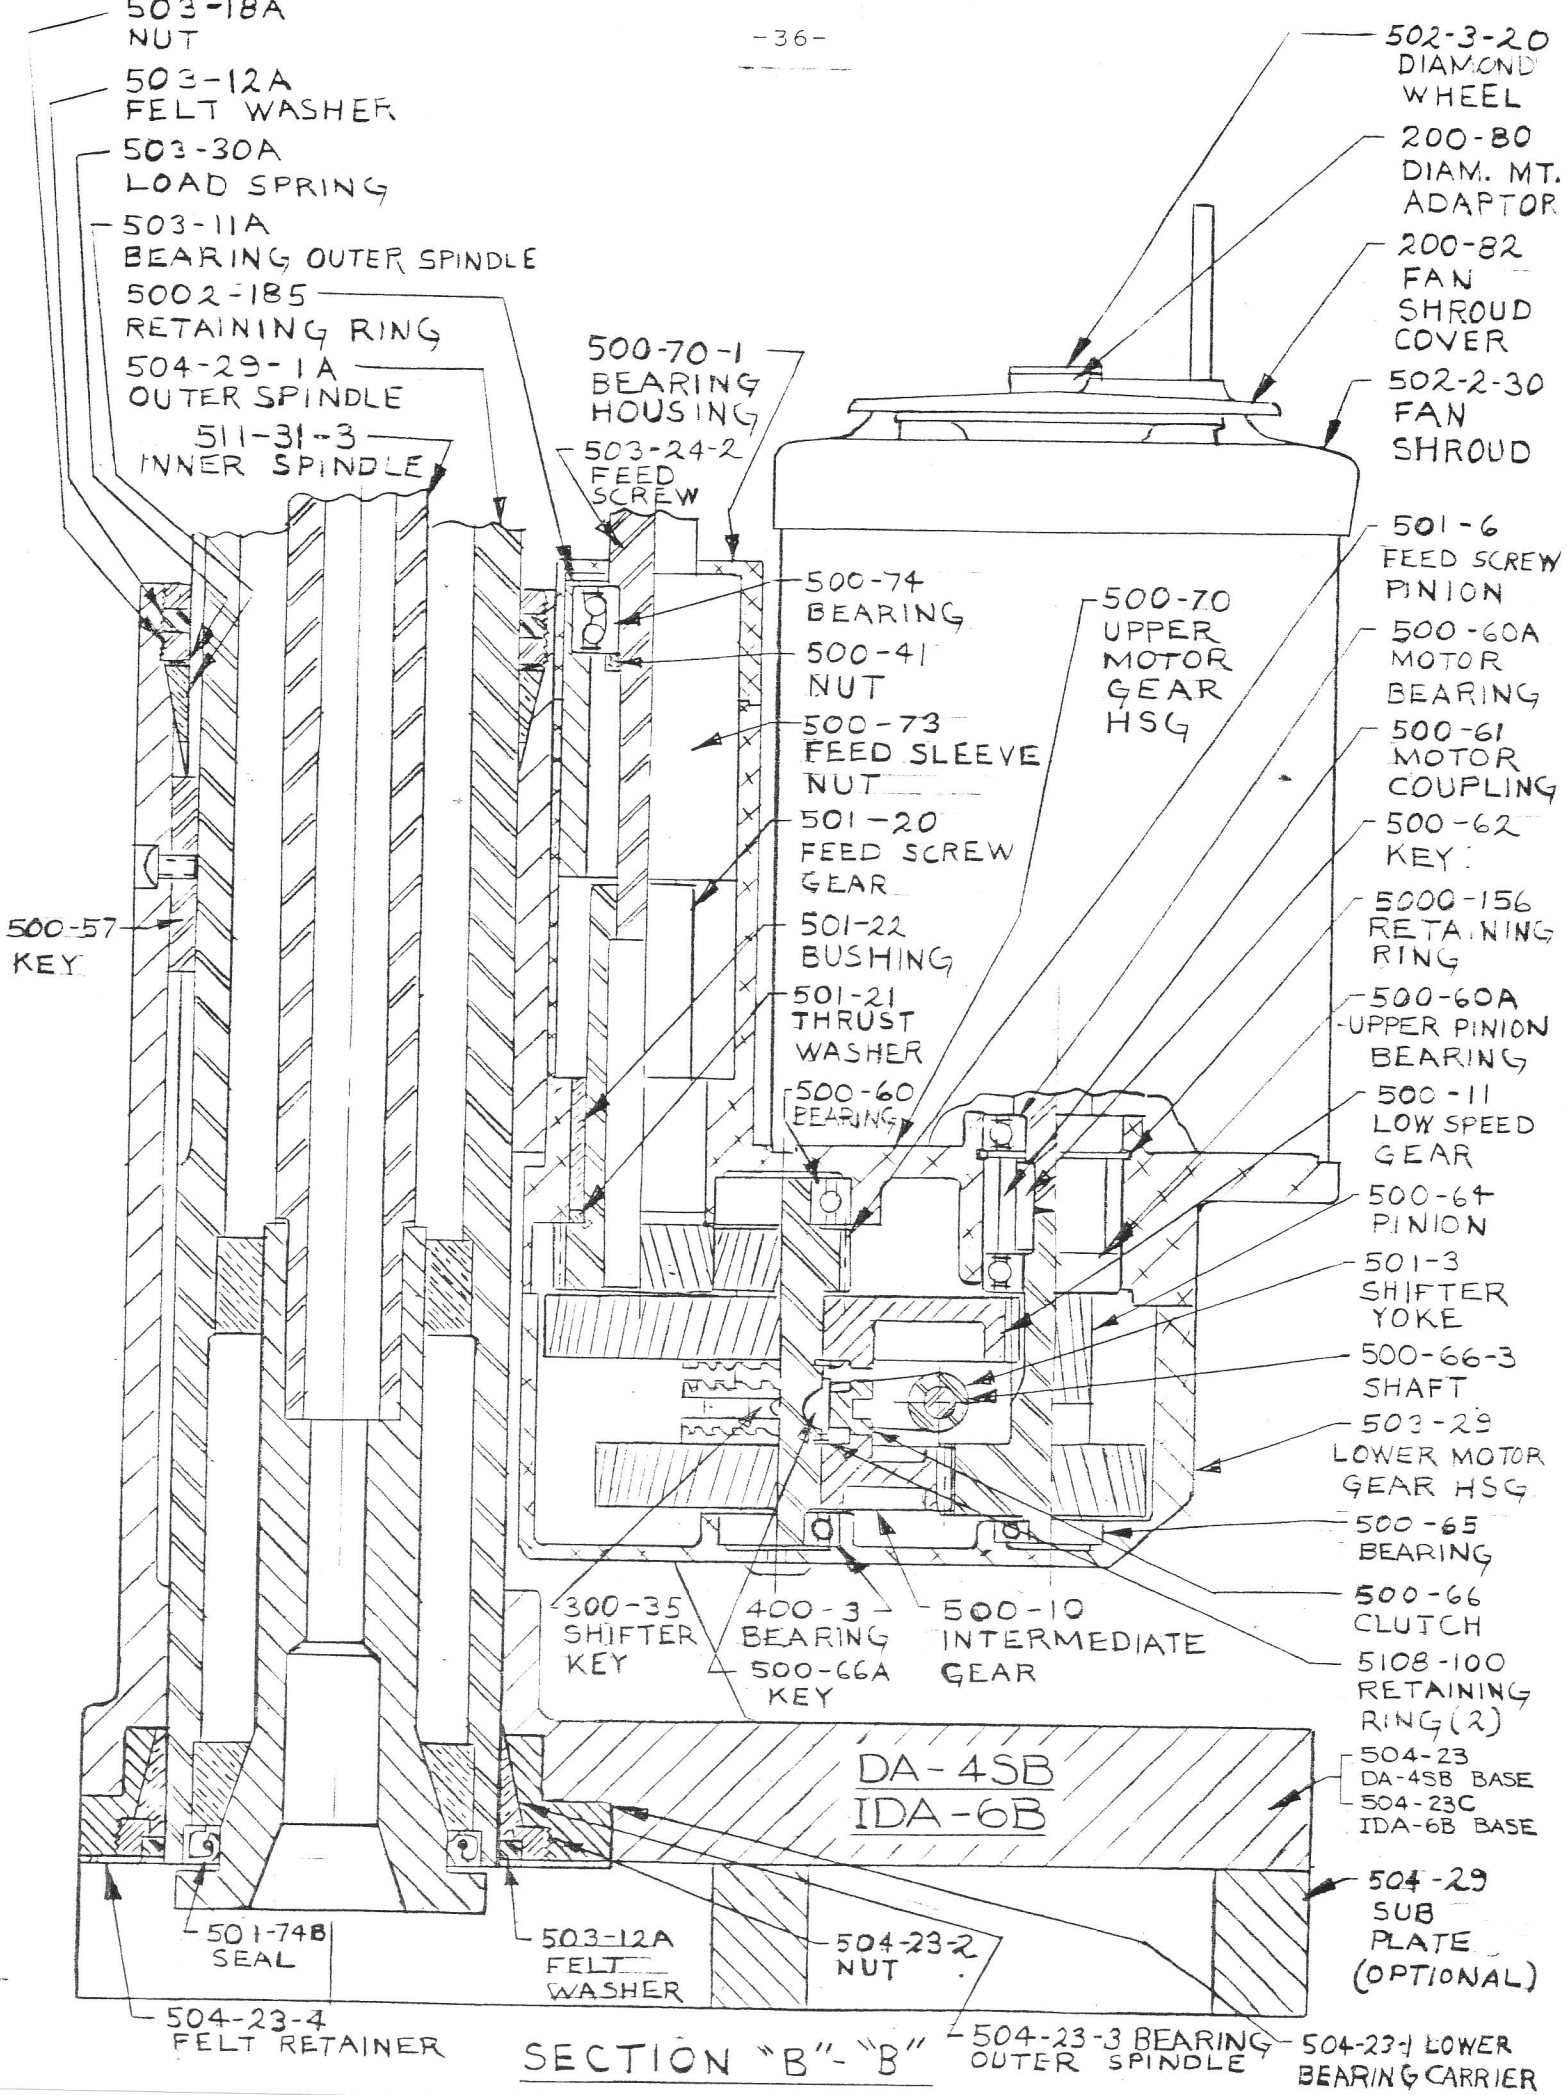 503-18A
NUT
-36-
503-12A
FELT WASHER
503-30A
LOAD SPRING
503-11A
BEARING OUTER SPINDLE
5002-185
RETAINING RING
504-29-1A
OUTER SPINDLE
511-31-3
INNER SPINDLE
500-57
KEY
500-70-1
BEARING
HOUSING
503-24-2
FEED
SCREW
500-74
BEARING
500-41
NUT
500-73
FEED SLEEVE
NUT
501-20
FEED SCREW
GEAR
501-22
BUSHING
501-21
THRUST
WASHER
500-60
BEARING
500-70
UPPER
MOTOR
GEAR
HSG
502-3-20
DIAMOND
WHEEL
200-80
DIAM. MT.
ADAPTOR
200-82
FAN
SHROUD
COVER
502-2-30
FAN
SHROUD
501-6
FEED SCREW
PINION
500-60A
MOTOR
BEARING
500-61
MOTOR
COUPLING
500-62
KEY
5000-156
RETAINING
RING
500-60A
UPPER PINION
BEARING
500-11
LOW SPEED
GEAR
500-64
PINION
501-3
SHIFTER
YOKE
500-66-3
SHAFT
503-29
LOWER MOTOR
GEAR HSG
500-65
BEARING
500-66
CLUTCH
5108-100
RETAINING
RING (2)
504-23
DA-4SB BASE
504-23C
IDA-6B BASE
504-29
SUB
PLATE
(OPTIONAL)
300-35
SHIFTER
KEY
400-3
BEARING
500-66A
KEY
500-10
INTERMEDIATE
GEAR
DA-4SB
IDA-6B
501-74B
SEAL
503-12A
FELT
WASHER
504-23-2
NUT
504-23-4
FELT RETAINER
SECTION "B"-"B"
504-23-3 BEARING
OUTER SPINDLE
504-23-1 LOWER
BEARING CARRIER